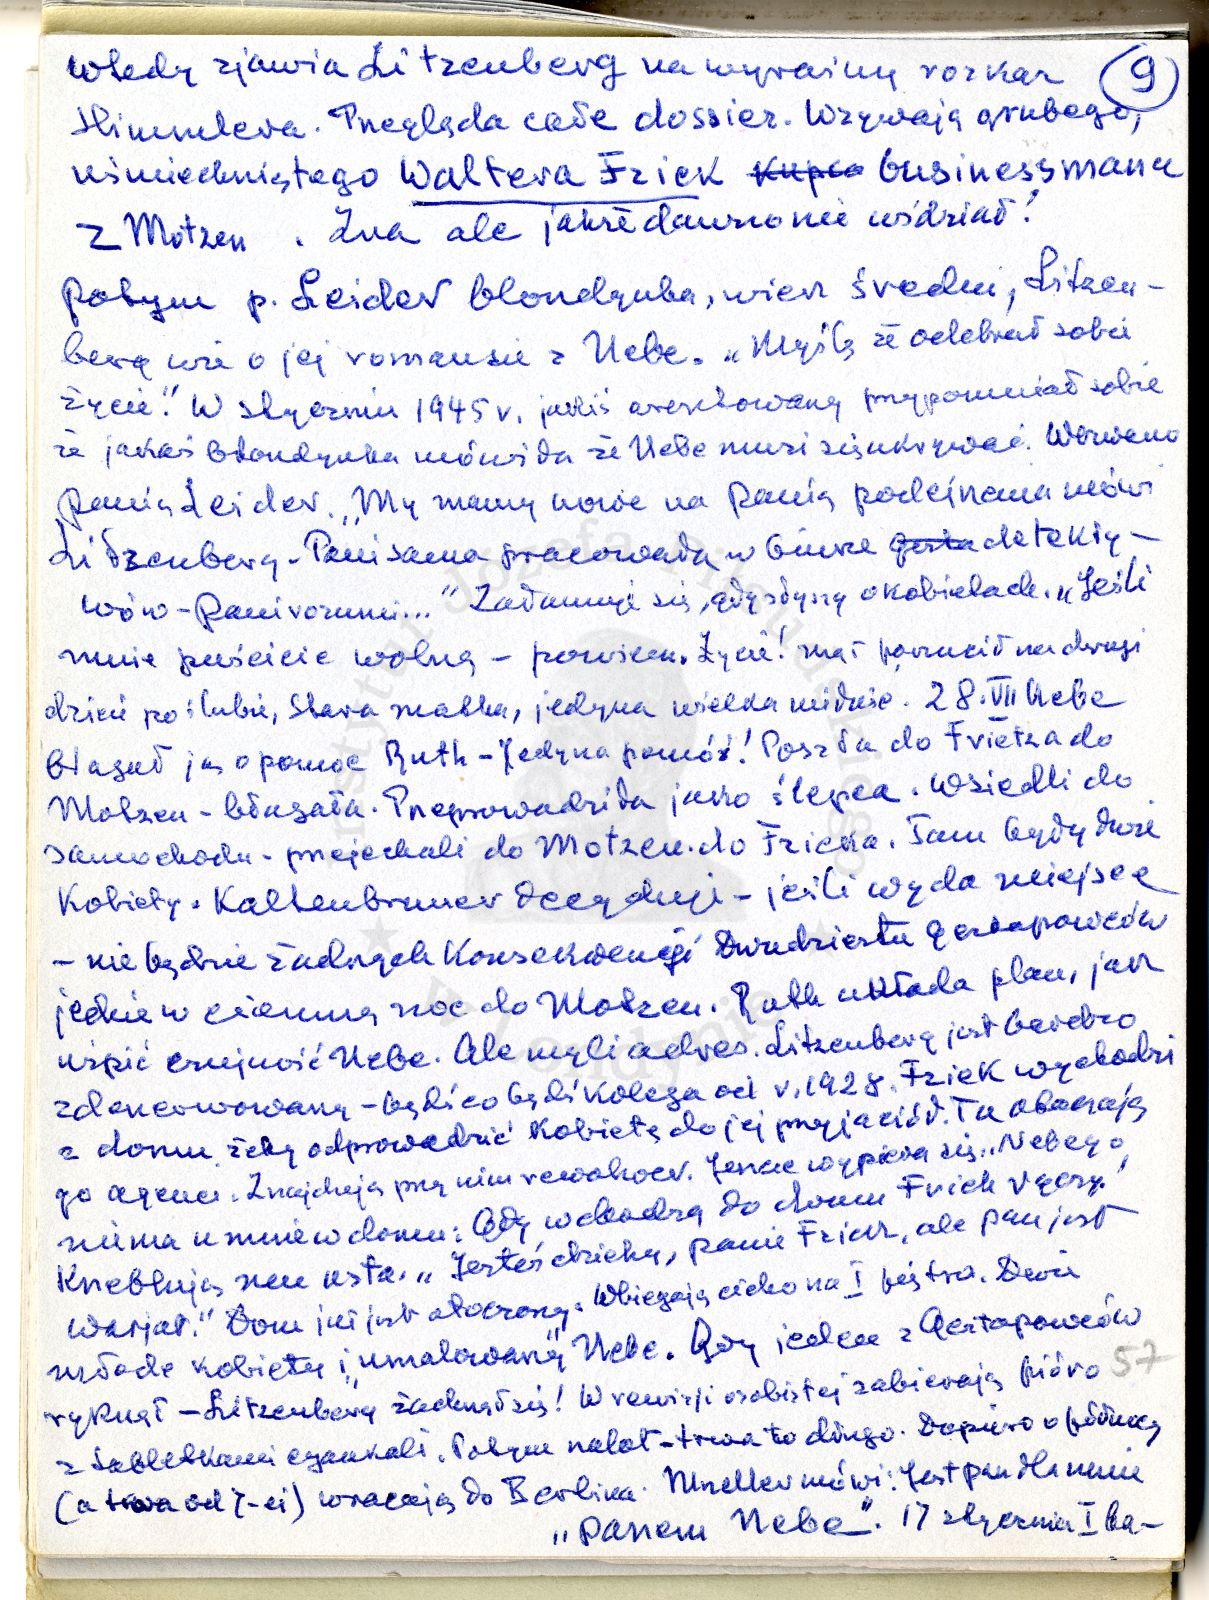 wtedy zjawia Litzenberg na wyraźny rozkaz
9
Himmlera. Przegląda całe dossier. Wzywają grubego,
uśmiechniętego Waltera Friek kupca businessmana
z Motzen. Zna ale jakże dawno nie widział!
Potym p. Leider blondynka, wiek średni, Litzen-
berg wie o jej romansie z Nebe. „Myślę że odebrał sobie
życie." W styczniu 1945 r. jakiś aresztowany przypomniał sobie
że jakaś blondynka mówiła że Nebe musi się ukrywać. Wezwano
panią Leider. „My mamy nowe na panią podejrzenia mówi
Litzenberg - Pani sama pracowała w biurze detekty-
wów - Pani rozumie..." Załamuje się, gdy słyszy o kobietach. „Jeśli
mnie puścicie wolną - powiem. Życie! mąż porzucił na drugi
dzień po ślubie, stara matka, jedyna wielka miłość. 28.VII Nebe
błagał ją o pomoc Ruth - Jedyna pomóż! Poszła do Frietza do
Motzen - błagała. Przeprowadziła jako ślepca. Wsiedli do
samochodu - przejechali do Motzen. do Fricka. Tam były dwie
Kobiety. Kaltenbruner decyduje - jeśli wyda miejsce
- nie będzie żadnych konsekwencji Dwudziestu gestapowców
jedzie w ciemną noc do Motzen. Ruth układa plan, jak
uśpić czujność Nebe. Ale myli adres. Litzenberg jest bardzo
zdenerwowany - bądź co bądź kolega od r. 1928. Friek wychodzi
z domu żeby odprowadzić kobietę do jej przyjaciół. Tu otaczają
go agenci. Znajdują przy nim rewolwer. Jeszcze wypiera się „Nebego
nie ma u mnie w domu: Gdy wchodzą do domu Friek ryczy!
Kneblują mu usta. „Jesteś dzielny, panie Friek, ale pan jest
wariat." Dom już jest otoczony. Wbiegają cicho na I piętro. Dwie
młode kobiety i „umalowany" Nebe. Gdy jeden z Gestapowców
57
ryknął - Litzenberg żachnął się! W rewizji osobistej zabierają pióro
z tabletkami cyankali. Potym nalot - trwa to długo. Dopiero o północy
(a trwa od 7-ej) wracają do Berlina. Mueller mówi: Jest pan dla mnie
„panem Nebe". 17 stycznia I ba-